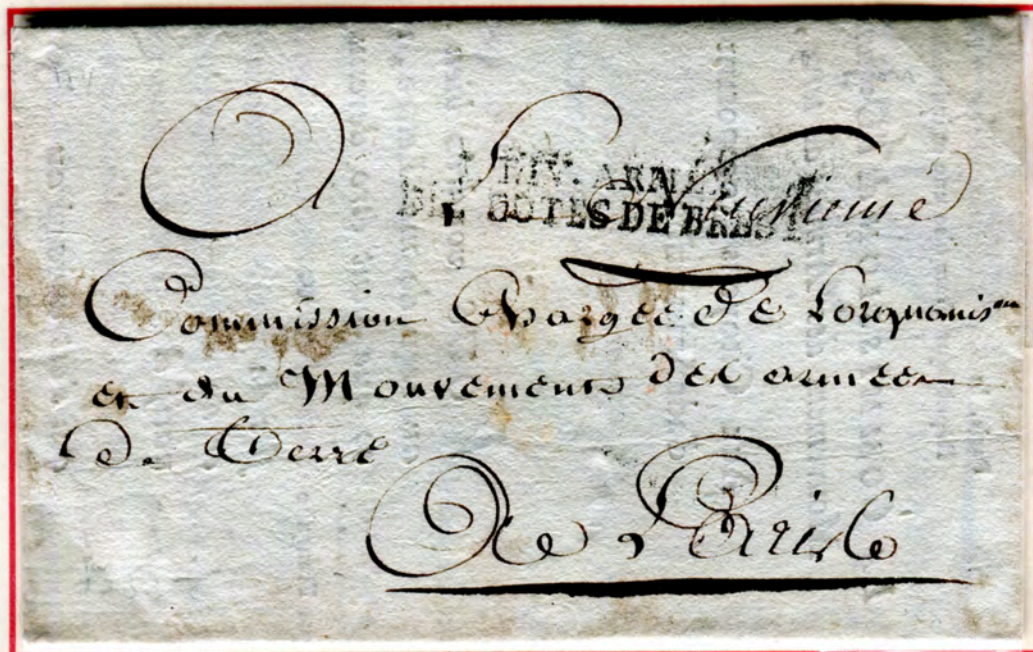 A La Neuvieme
DIV. ARMÉE
DES COTES DE BREST
Commission Chargée De Lorganis.on
et du Mouvement des armées
De Terre
A Paris